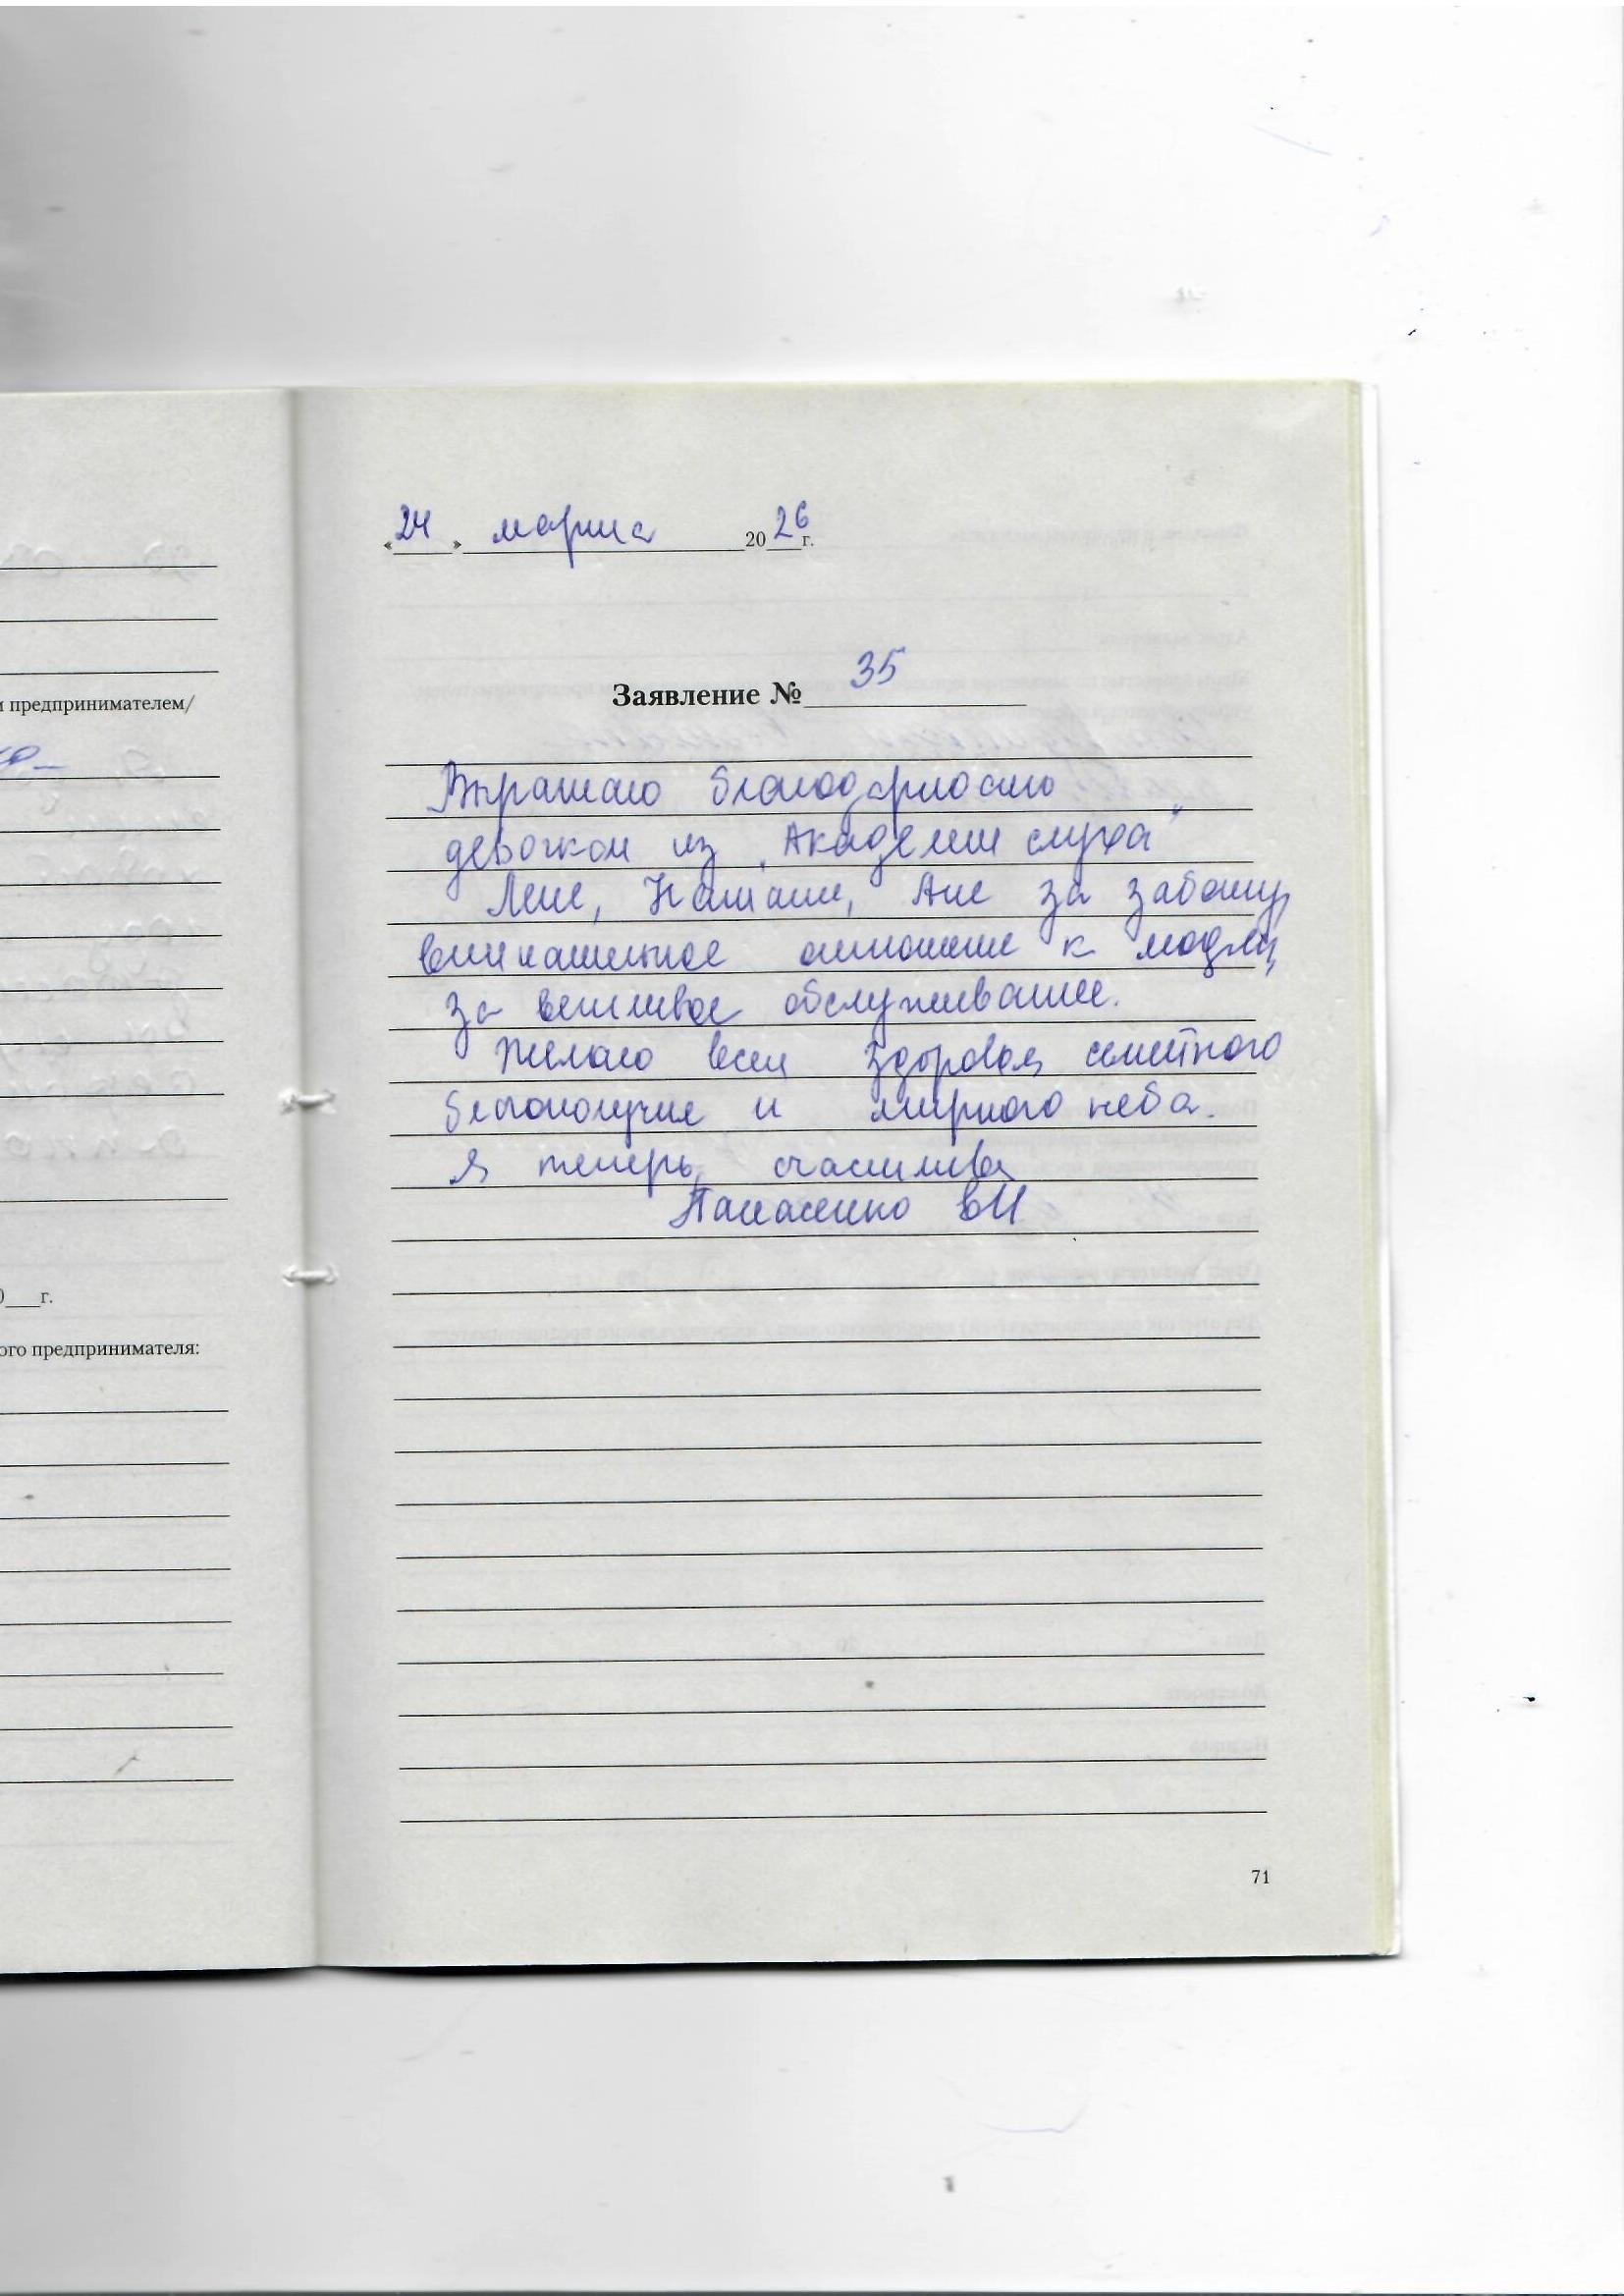 «24» марта 2026 г.
Заявление № 35
Выражаю благодарность
девочкам из "Академии слуха"
Лене, Наташе, Ане за заботу,
внимательное отношение к людям,
за вежливое обслуживание.
Желаю всем здоровья, семейного
благополучия и мирного неба.
Я теперь счастлива
Панасенко ВИ
71
и предпринимателем/
0___г.
ого предпринимателя: